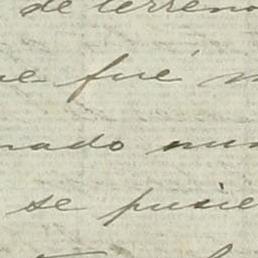 de terreno
ue fué
nado
se pusie